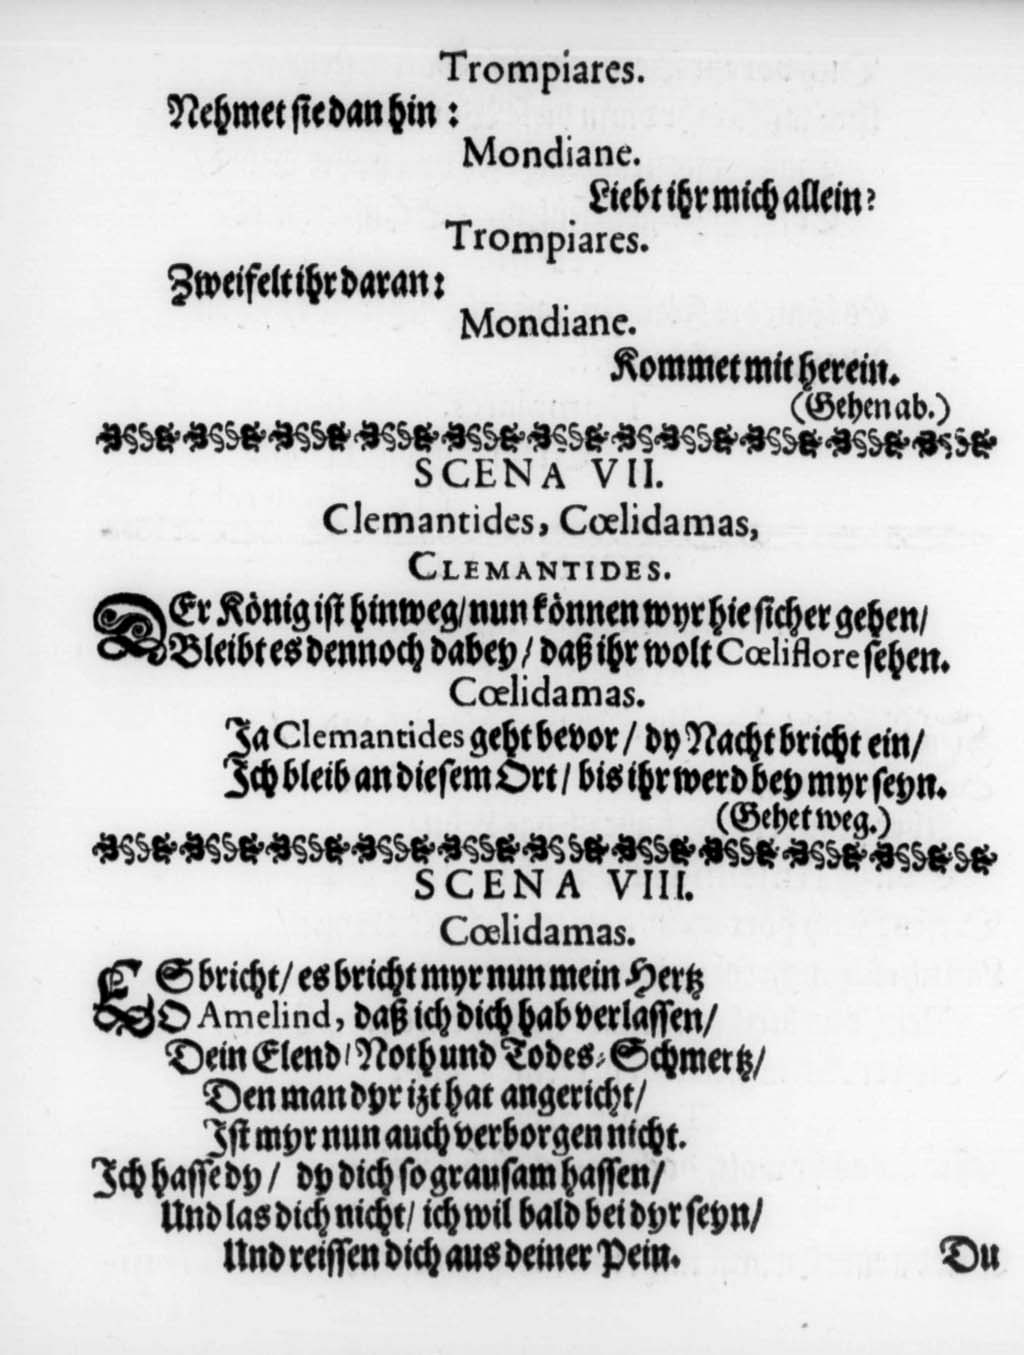 Trompiares.
Nehmet sie dan hin :
Mondiane.
Liebt ihr mich allein?
Trompiares.
Zweifelt ihr daran:
Mondiane.
Kommet mit herein.
(Gehen ab.)
SCENA VII.
Clemantides, Cœlidamas,
CLEMANTIDES.
DEr König ist hinweg/ nun können wyr hie sicher gehen/
Bleibt es dennoch dabey/ daß ihr wolt Cœliflore sehen.
Cœlidamas.
Ja Clemantides geht bevor/ dy Nacht bricht ein/
Ich bleib an diesem Ort/ bis ihr werd bey myr seyn.
(Gehet weg.)
SCENA VIII.
Cœlidamas.
ES bricht/ es bricht myr nun mein Hertz
O Amelind, daß ich dich hab verlassen/
Dein Elend/ Noth und Todes-Schmertz/
Den man dyr izt hat angericht/
Ist myr nun auch verborgen nicht.
Ich hasse dy/ dy dich so grausam hassen/
Und las dich nicht/ ich wil bald bei dyr seyn/
Und reissen dich aus deiner Pein.
Du